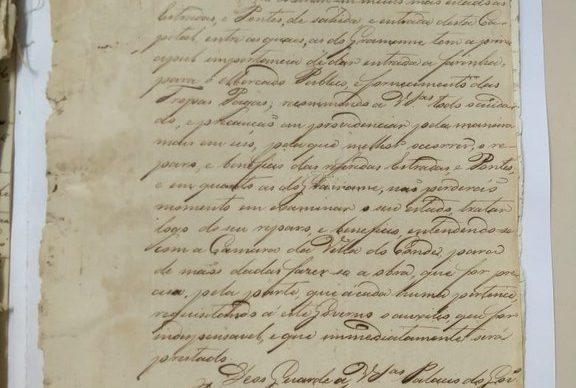 Estradas, e Pontes, de sahida, e entrada desta Ca-
pital, entre as quaes, as do Gramame, tem a prin-
cipal importancia de dar entrada a farinha,
para o Mercado Publico, e fornecimento das
Tropas Pagas; recommendo a Vas todo o cuida-
do, e precaução em providenciar pela maneira
mais em uso, pela que melhor occorrer, o re-
paro, e beneficio das referidas Estradas, e Pontes,
e em quanto as do Gramame, não perdereis
momento em examinar o seu estado, tratan
logo do seu reparo, e beneficio, entendendo-se
com a Camara da Villa do Conde, para
de mãos dadas fazer-se a obra, que for pre-
cisa, pela parte, que a cada huma pertence
requisitando a este Governo o auxilio, que for
indispensavel, e que immediatamente será
prestado.
Deos Guarde a Vas Palacio do Go